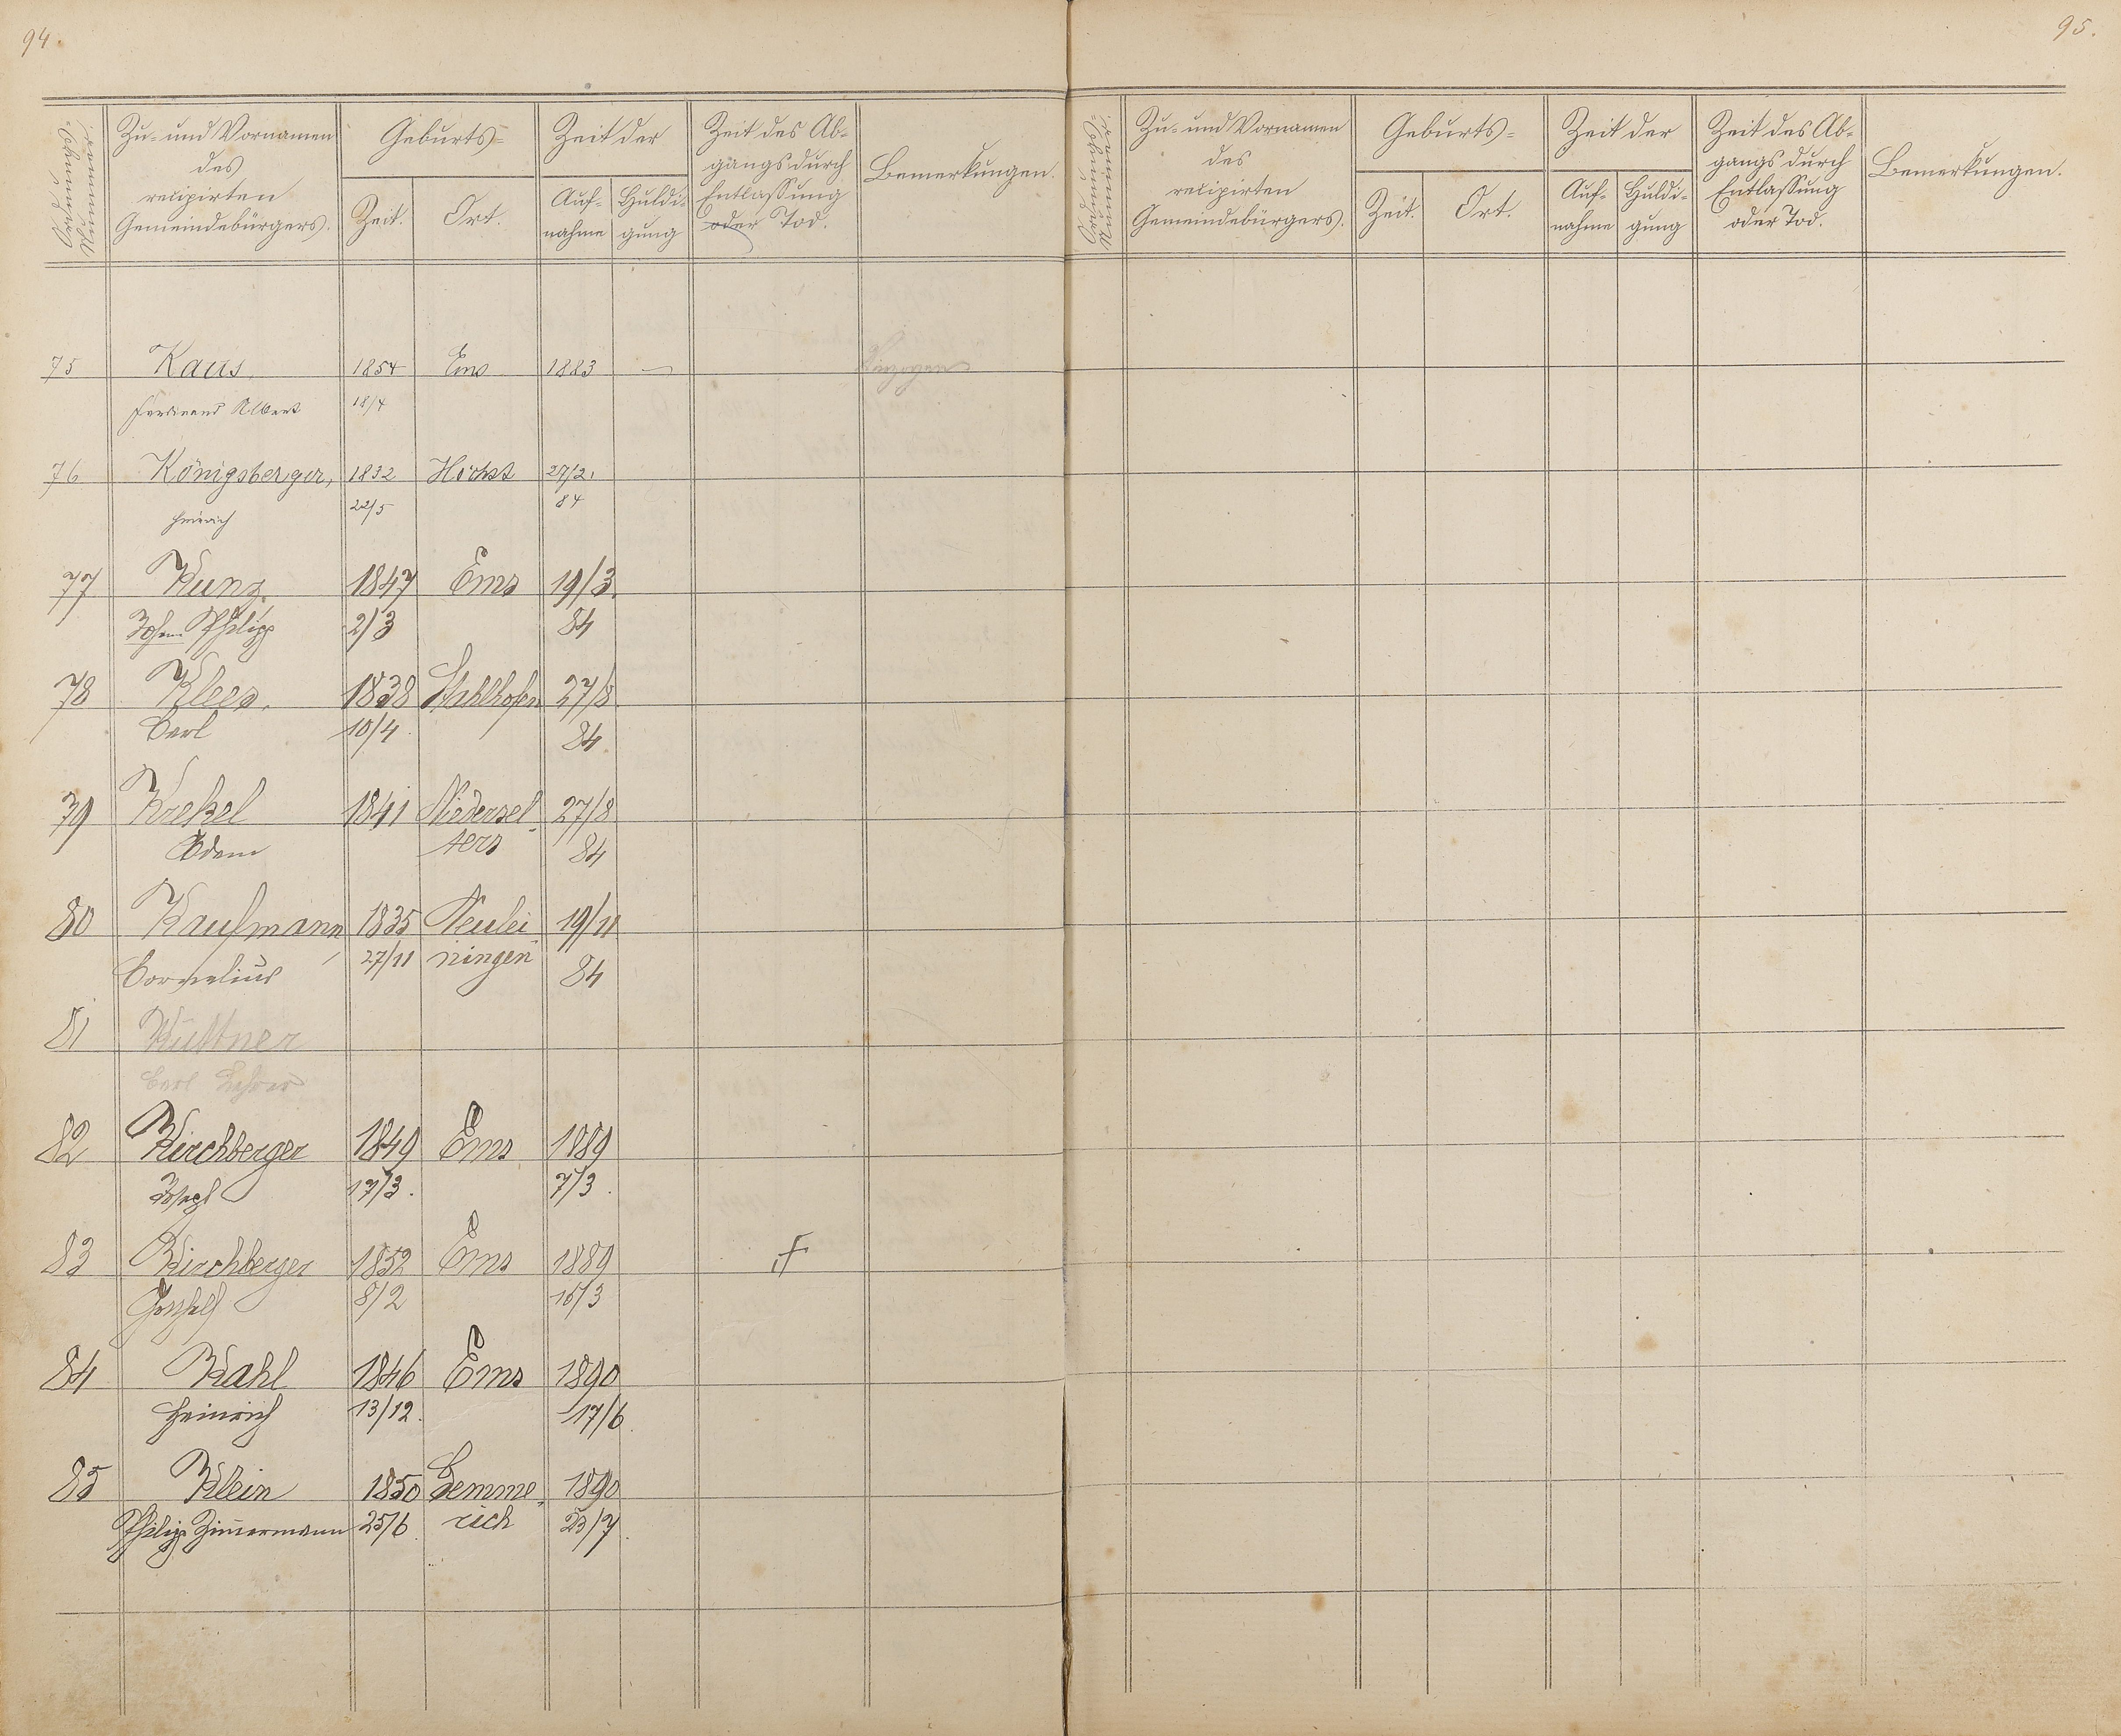 94.
95.
Ordnungs-
Nummer.
Zu- und Vornamen
des
recipirten
Gemeindebürgers.
Geburts-
Zeit.
Ort.
Zeit der
Auf-
nahme
Huldi-
gung
Zeit des Ab-
gangs durch
Entlassung
oder Tod.
Bemerkungen.
75 Kaus, 1854 Ems 1883 —
Ferdinand Albert 18/4
76 Königsberger, 1832 Höchst 27/2.
Heinrich 22/5 84
77 Kunz. 1847 Ems 19/3.
Johann Philipp 2/3 84
78 Klees. 1838 Stahlhofen 27/8.
Carl 10/4. 84.
79 Krekel 1841 Niedersel- 27/8
Adam ters 84
80 Kaufmann, 1835 Neulei- 19/11
Cornelius 27/11 ningen 84
81 Küttner
Carl Lehrer
82 Kirchberger 1849 Ems 1889
Joseph 17/3. 7/3.
83 Kirchberger 1852 Ems 1889 †
8/2 15/3
84 Kahl 1846 Ems 1890
Heinrich 13/12. 17/6.
85 Klein 1850 Gemme- 1890
Philipp Zimmermann 25/6 rich 23/7.
Ordnungs-
Nummer.
Zu- und Vornamen
des
recipirten
Gemeindebürgers.
Geburts-
Zeit.
Ort.
Zeit der
Auf-
nahme
Huldi-
gung
Zeit des Ab-
gangs durch
Entlassung
oder Tod.
Bemerkungen.